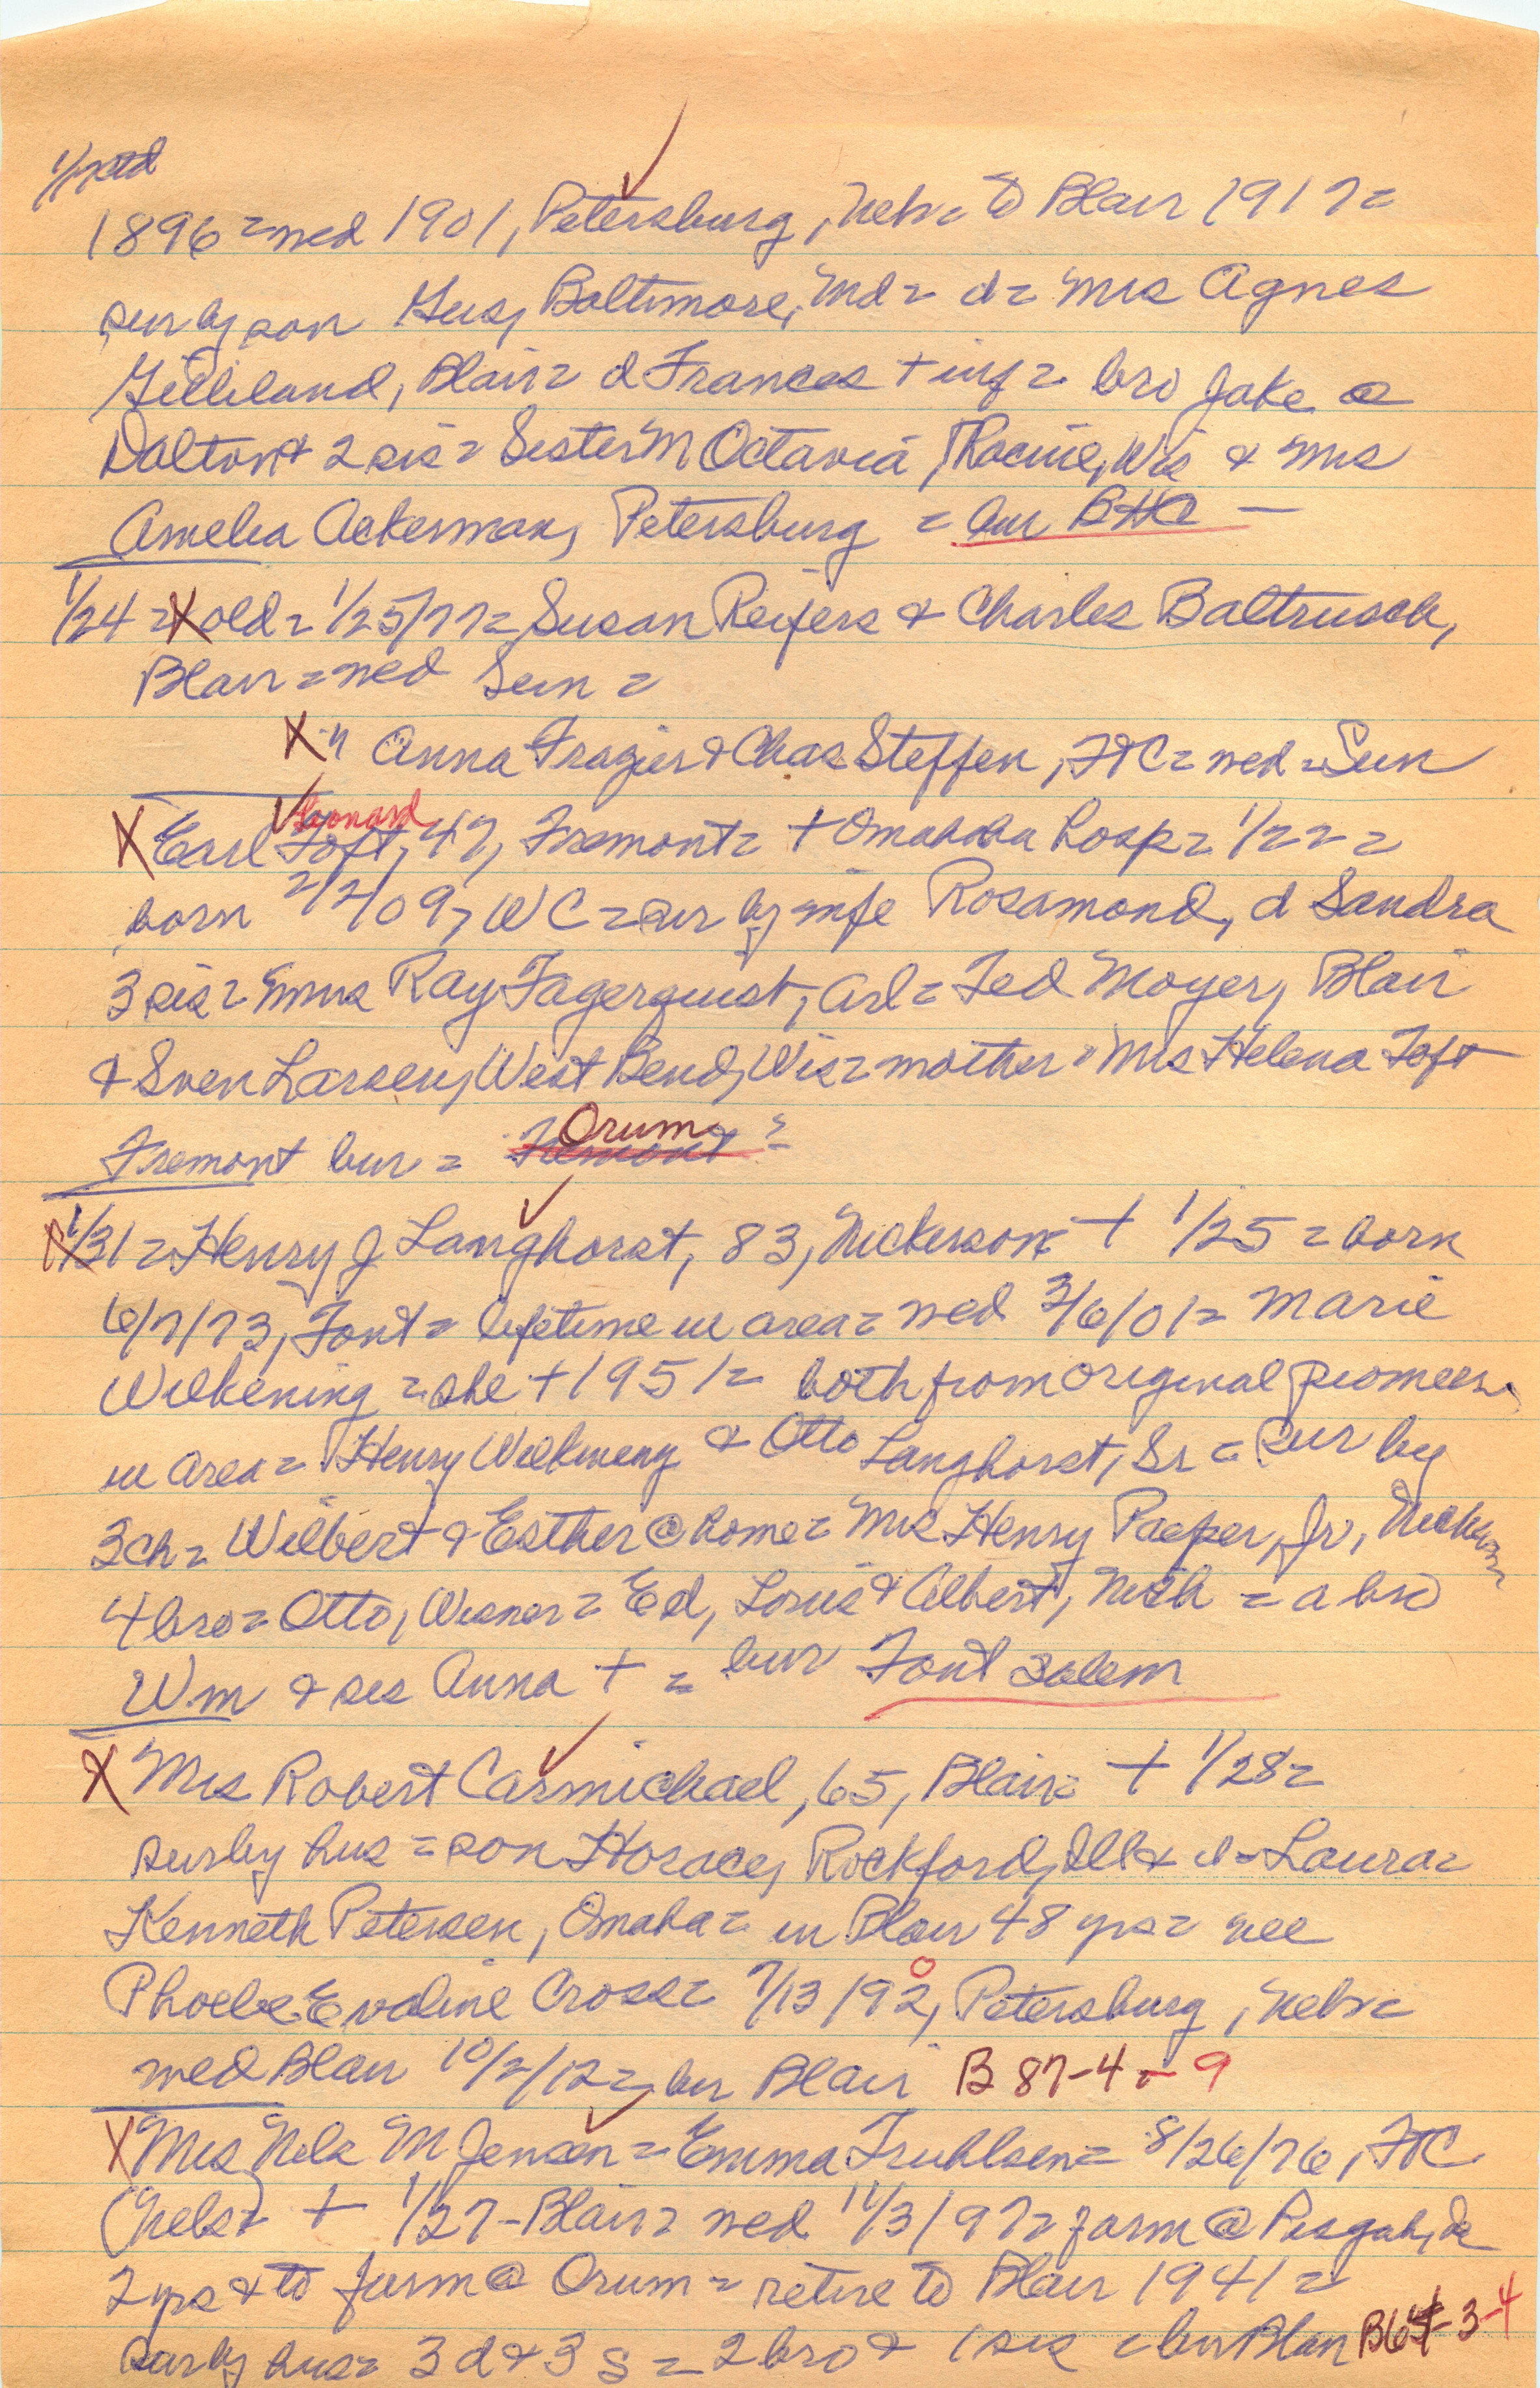 1896 = wed 1901, Petersburg, Neb = to Blair 1917 =
sur by son Gus, Baltimore, Md = d = Mrs Agnes
Gilliland, Blair = d Frances + inf = bro Jake @
Dalton & 2 sis = Sister M Octavia, Racine, Wis & Mrs
Amelia Ackerman, Petersburg = bur BHC —
1/24 = X old = 1/25/77 = Susan Reifers & Charles Baltrusch,
Blair = wed Sun =
X " Anna Frazier & Chas Steffen, FtC = wed = Sun
Leonard
X Earl Toft, 47, Fremont = + Omaha hosp = 1/22 =
born 2/2/09, WC = sur by wife Rosamond, d Sandra
3 sis = Mmes Ray Fagerquist, Arl = Ted Moyer, Blair
& Sven Larsen, West Bend, Wis = mother = Mrs Helena Toft
Orum
Fremont bur = Fremont ?
X 1/31 = Henry J Langhorst, 83, Nickerson + 1/25 = born
6/7/73, Font = lifetime in area = wed 3/6/01 = Marie
Wilkening = she + 1951 = both from original pioneers
in area = Henry Wilkening & Otto Langhorst, Sr = Sur by
3 ch = Wilbert & Esther @ home = Mrs Henry Paeper, Jr, Nickerson
4 bro = Otto, Wisner = Ed, Louis & Albert, Nick = a bro
Wm & sis Anna + = bur Font Salem
X Mrs Robert Carmichael, 65, Blair = + 1/28 =
sur by hus = son Horace, Rockford, Ill & d = Laura =
Kenneth Petersen, Omaha = in Blair 48 yrs = nee
Phoebe Evaline Cross = 7/13/92, 0 Petersburg, Neb =
wed Blair 10/2/12 = bur Blair B 87-4-9
X Mrs Nels M Jensen = Emma Truhlsen = 8/26/76, FtC
(Nels = + 1/27 - Blair = wed 11/3/97 = farm @ Pisgah, Ia
2 yrs & to farm @ Orum = retire to Blair 1941 =
sur by hus = 3 d & 3 s = 2 bro & 1 sis = bur Blair -3-4